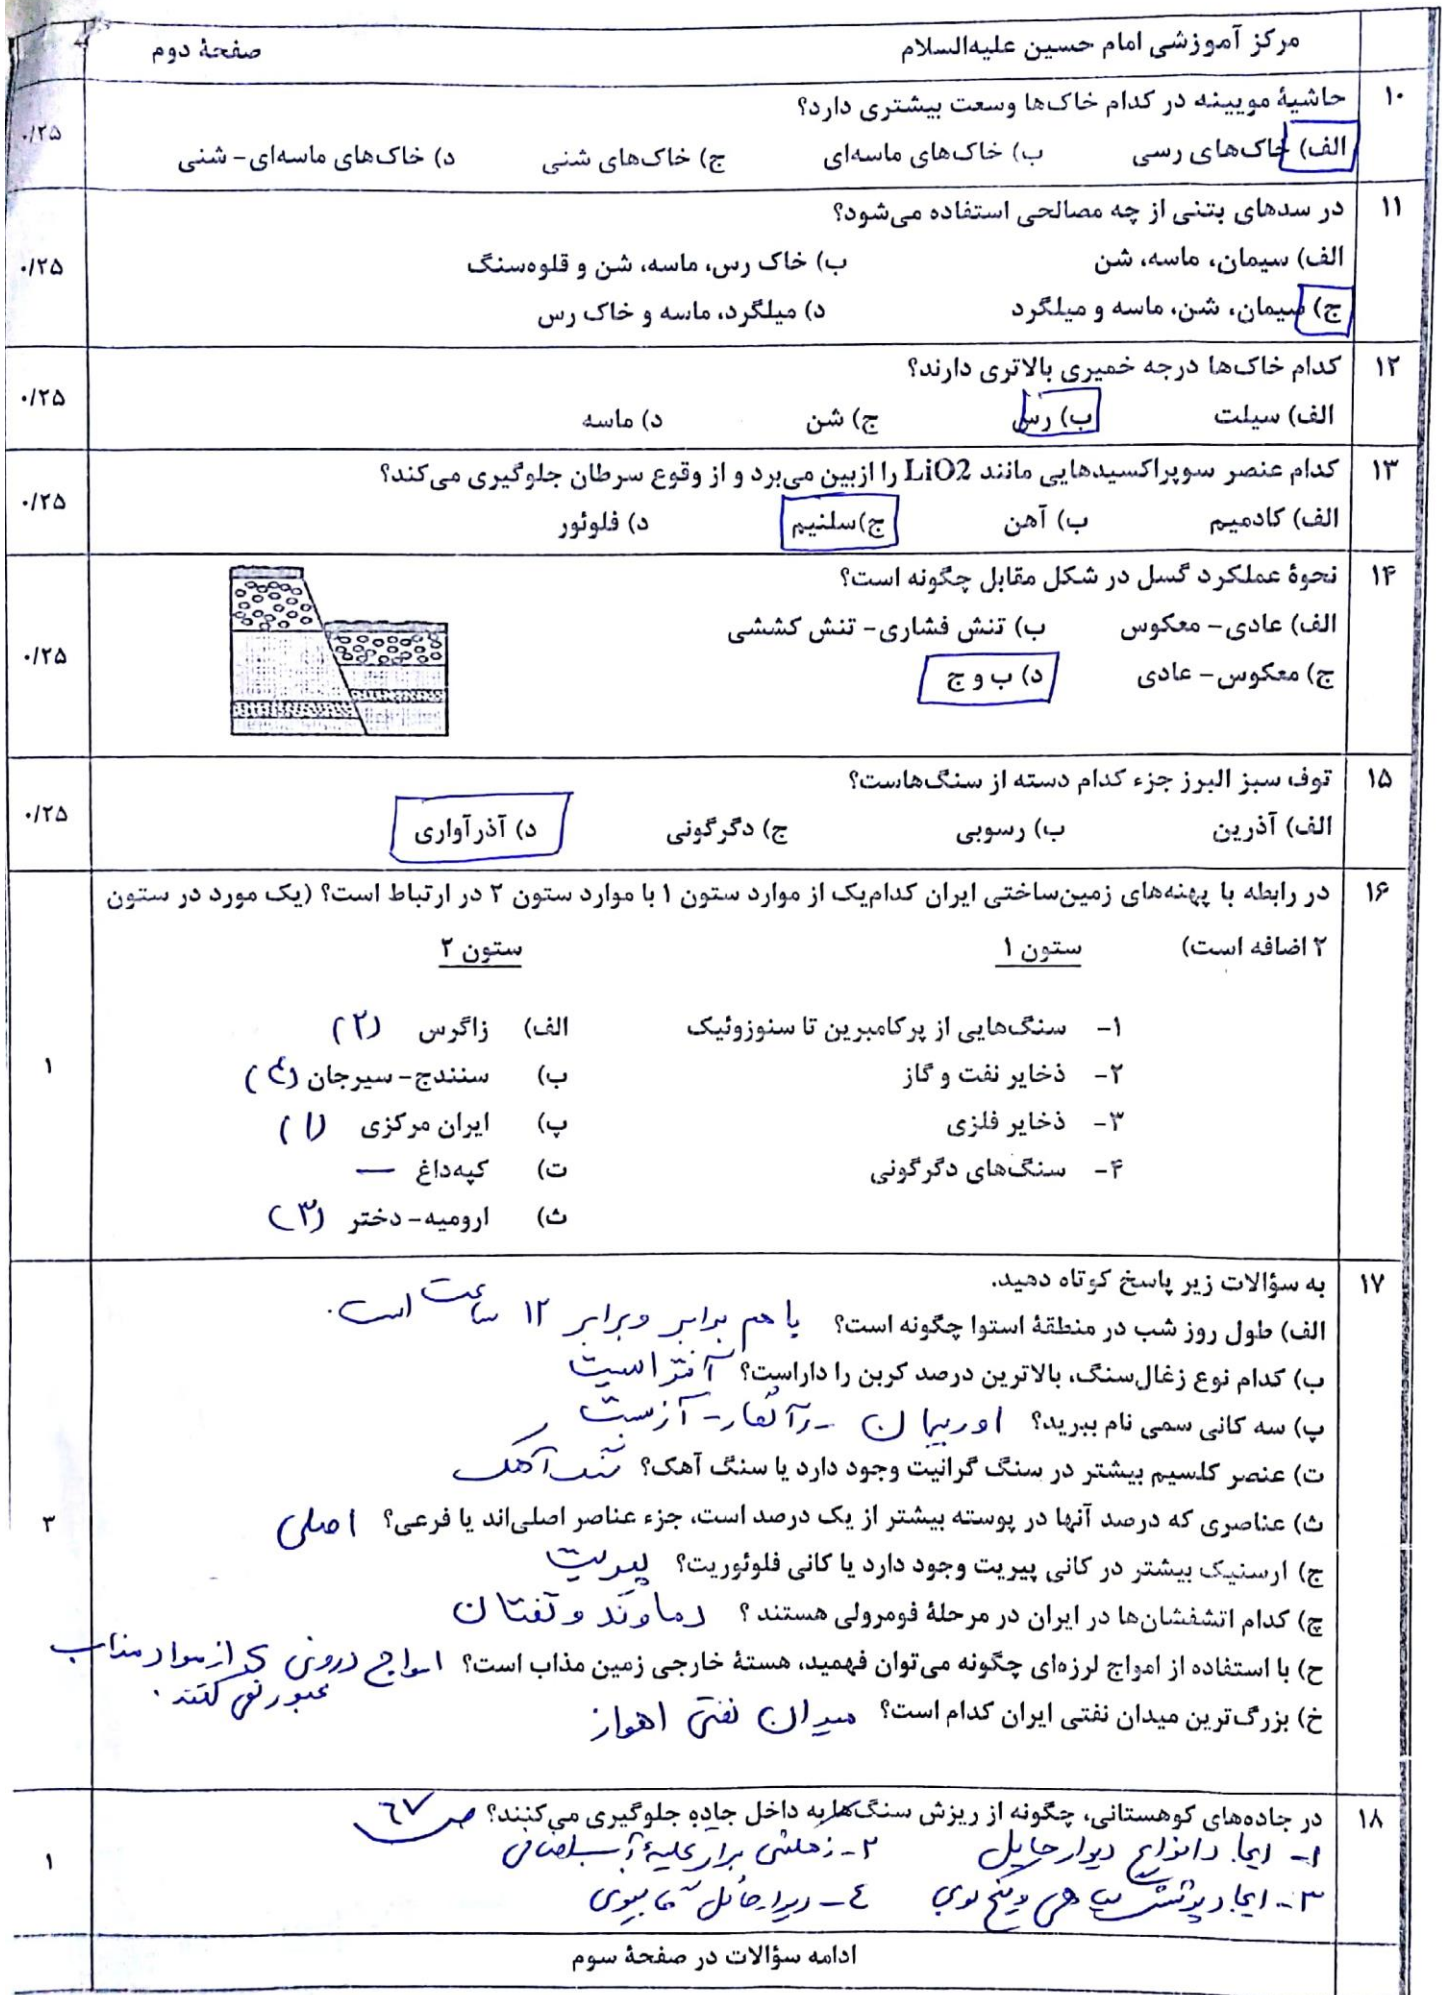 مرکز آموزشی امام حسین علیه‌السلام صفحهٔ دوم
۱۰ حاشیهٔ مویینه در کدام خاک‌ها وسعت بیشتری دارد؟
الف) خاک‌های رسی ب) خاک‌های ماسه‌ای ج) خاک‌های شنی د) خاک‌های ماسه‌ای- شنی ۰/۲۵
۱۱ در سدهای بتنی از چه مصالحی استفاده می‌شود؟
الف) سیمان، ماسه، شن ب) خاک رس، ماسه، شن و قلوه‌سنگ ۰/۲۵
ج) سیمان، شن، ماسه و میلگرد د) میلگرد، ماسه و خاک رس
۱۲ کدام خاک‌ها درجه خمیری بالاتری دارند؟
الف) سیلت ب) رس ج) شن د) ماسه ۰/۲۵
۱۳ کدام عنصر سوپراکسیدهایی مانند LiO2 را ازبین می‌برد و از وقوع سرطان جلوگیری می‌کند؟
الف) کادمیم ب) آهن ج)سلنیم د) فلوئور ۰/۲۵
۱۴ نحوهٔ عملکرد گسل در شکل مقابل چگونه است؟
الف) عادی- معکوس ب) تنش فشاری- تنش کششی ۰/۲۵
ج) معکوس- عادی د) ب و ج
۱۵ توف سبز البرز جزء کدام دسته از سنگ‌هاست؟
الف) آذرین ب) رسوبی ج) دگرگونی د) آذرآواری ۰/۲۵
۱۶ در رابطه با پهنه‌های زمین‌ساختی ایران کدام‌یک از موارد ستون ۱ با موارد ستون ۲ در ارتباط است؟ (یک مورد در ستون
۲ اضافه است) ستون ۱ ستون ۲
۱- سنگ‌هایی از پرکامبرین تا سنوزوئیک الف) زاگرس (۲)
۲- ذخایر نفت و گاز ب) سنندج- سیرجان (٤) ۱
۳- ذخایر فلزی پ) ایران مرکزی (۱)
۴- سنگ‌های دگرگونی ت) کپه‌داغ —
ث) ارومیه- دختر (۳)
۱۷ به سؤالات زیر پاسخ کوتاه دهید.
الف) طول روز شب در منطقهٔ استوا چگونه است؟ با هم برابر و برابر ۱۲ ساعت است.
ب) کدام نوع زغال‌سنگ، بالاترین درصد کربن را داراست؟ آنتراسیت
پ) سه کانی سمی نام ببرید؟ اورپیمان - رآلگار - آزبست
ت) عنصر کلسیم بیشتر در سنگ گرانیت وجود دارد یا سنگ آهک؟ سنگ آهک
ث) عناصری که درصد آنها در پوسته بیشتر از یک درصد است، جزء عناصر اصلی‌اند یا فرعی؟ اصلی ۳
ج) ارسنیک بیشتر در کانی پیریت وجود دارد یا کانی فلوئوریت؟ پیریت
چ) کدام اتشفشان‌ها در ایران در مرحلهٔ فومرولی هستند ؟ دماوند و تفتان
ح) با استفاده از امواج لرزه‌ای چگونه می‌توان فهمید، هستهٔ خارجی زمین مذاب است؟ امواج درونی S از مواد مذاب
عبور نمی کنند.
خ) بزرگ‌ترین میدان نفتی ایران کدام است؟ میدان نفتی اهواز
۱۸ در جاده‌های کوهستانی، چگونه از ریزش سنگ‌ها به داخل جاده جلوگیری می‌کنند؟ ص ٦٧
۱- ایجاد انواع دیوار حایل ۲- زهکشی برای تخلیهٔ آب اضافی ۱
۳- ایجاد پوشش گیاهی و میخ کوبی ٤- دیوار حائل گابیونی
ادامه سؤالات در صفحهٔ سوم